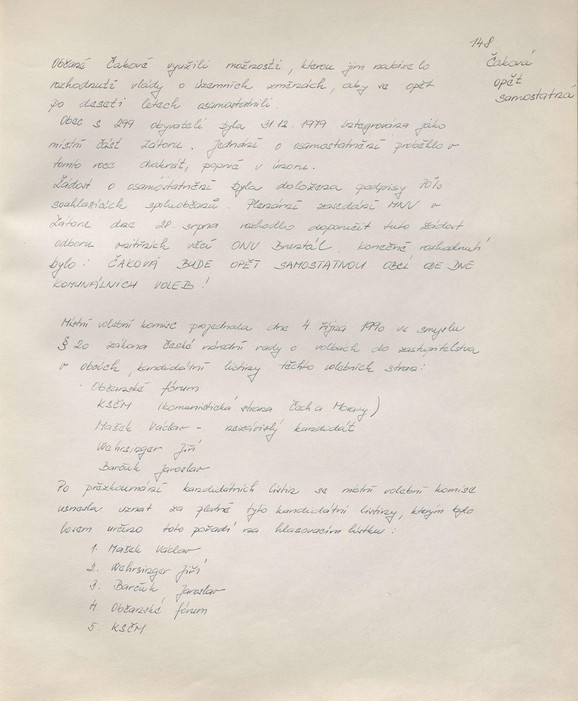 148
Čaková
opět
samostatná
Občané Čakové využili možnosti, kterou jim nabízelo
rozhodnutí vlády o územních změnách, aby se opět
po deseti letech osamostatnili.
Obec s 299 obyvateli byla 31.12.1979 integrována jako
místní část Zátoru. Jednání o osamostatnění proběhlo v
tomto roce dvakrát, poprvé v únoru.
Žádost o osamostatnění byla doložena podpisy
souhlasících spoluobčanů. Plenární zasedání MNV v
Zátoru dne 28. srpna rozhodlo doporučit tuto žádost
odboru vnitřních věcí ONV Bruntál. Konečné rozhodnutí
bylo: ČAKOVÁ BUDE OPĚT SAMOSTATNOU OBCÍ ODE DNE
KOMUNÁLNÍCH VOLEB!
Místní volební komise projednala dne 4. října 1990 ve smyslu
§ 20 zákona České národní rady o volbách do zastupitelstva
v obcích, kandidátní listiny těchto volebních stran:
Občanské fórum
KSČM (komunistická strana Čech a Moravy)
Mašek Václav - nezávislý kandidát
Wehrsinger Jiří
Barčák Jaroslav
Po přezkoumání kandidátních listin se místní volební komise
usnesla uznat za platné tyto kandidátní listiny, kterým bylo
losem určeno toto pořadí na hlasovacím lístku:
1. Mašek Václav
2. Wehrsinger Jiří
3. Barčák Jaroslav
4. Občanské fórum
5. KSČM